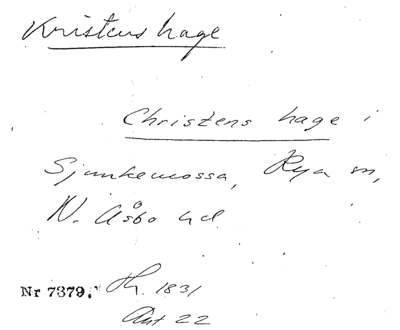 Kristens hage
Christens hage i
Sjunkemossa, Rya sn,
N. Åsbo hd
Nr 7379. Th. 1831
Akt 22